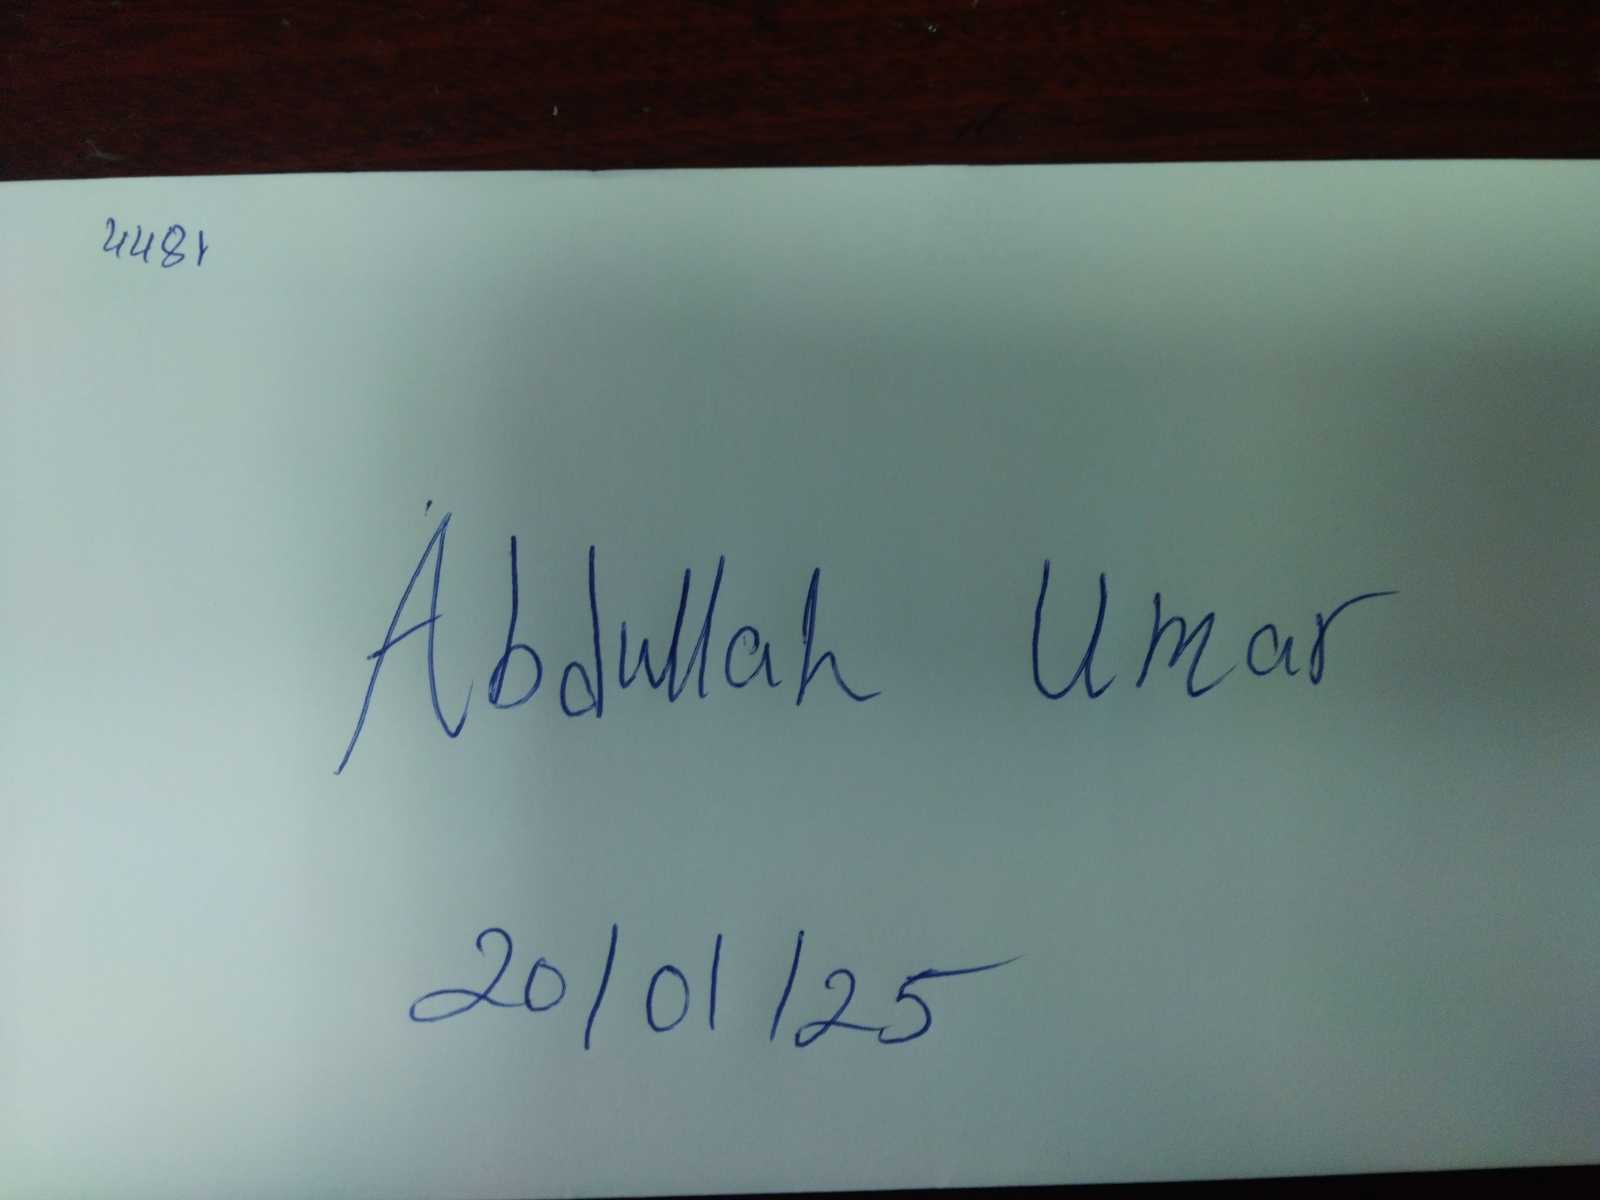 4481
Abdullah Umar
20/01/25